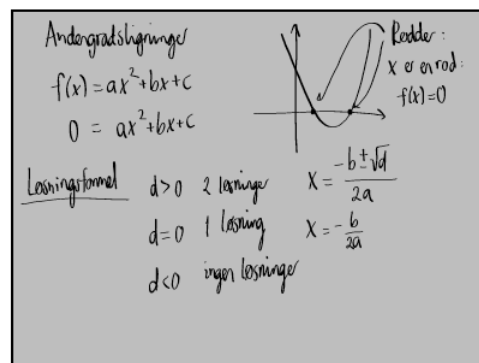 Andengradsligninger
f(x) = ax² + bx + c
0 = ax² + bx + c
Rødder:
x er en rod:
f(x) = 0
Løsningsformel
d > 0 2 løsninger x = (-b ± √d) / 2a
d = 0 1 løsning x = -b/2a
d < 0 ingen løsninger